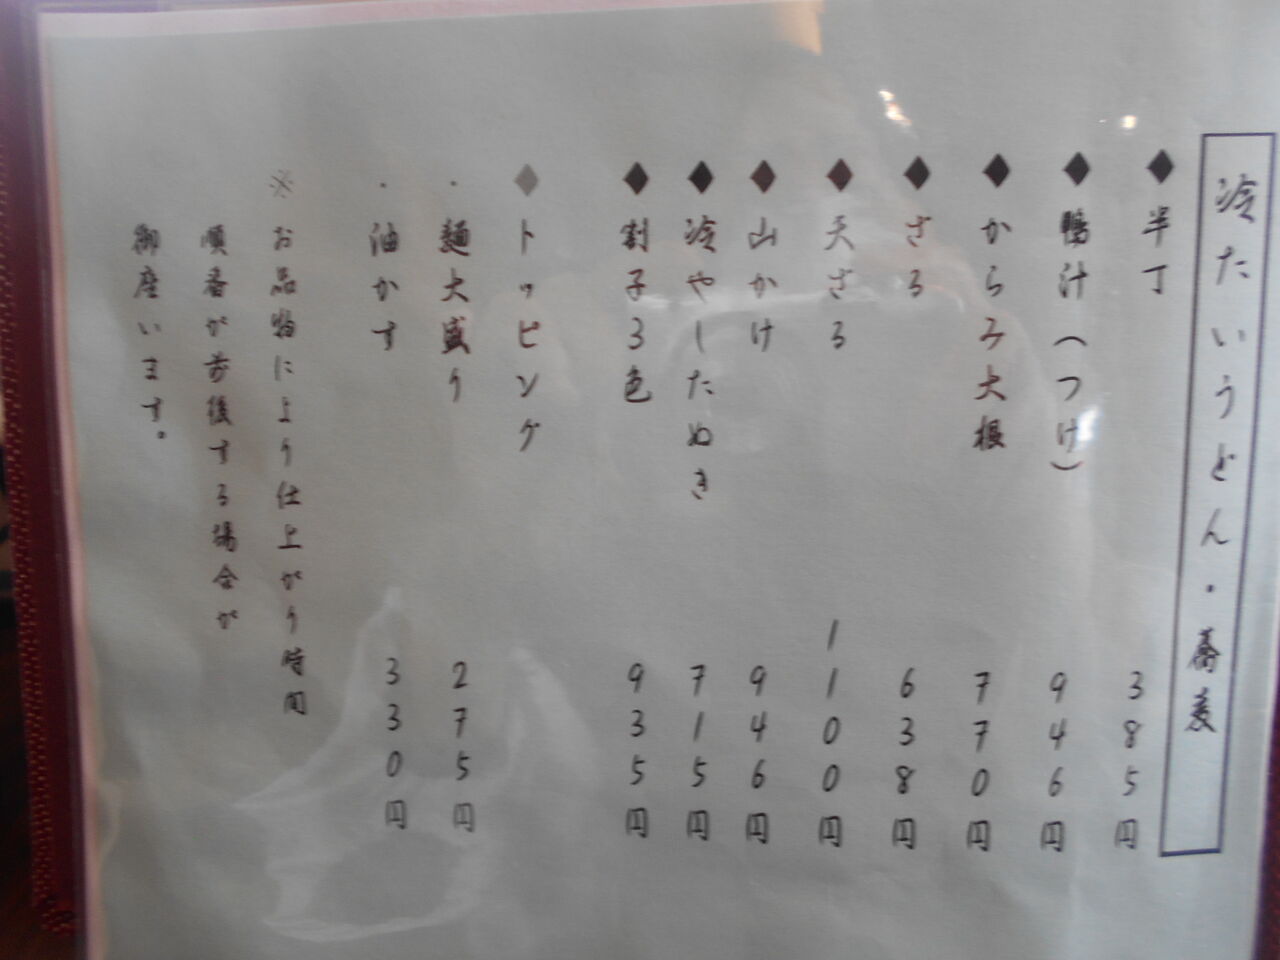 冷たいうどん・蕎麦
◆半丁 385円
◆鴨汁(つけ) 946円
◆からみ大根 770円
◆ざる 638円
◆天ざる 1100円
◆山かけ 946円
◆冷やしたぬき 715円
◆割子3色 935円
◆トッピング
・麺大盛り 275円
・油かす 330円
※お品物により仕上がり時間
順番が前後する場合が
御座います。